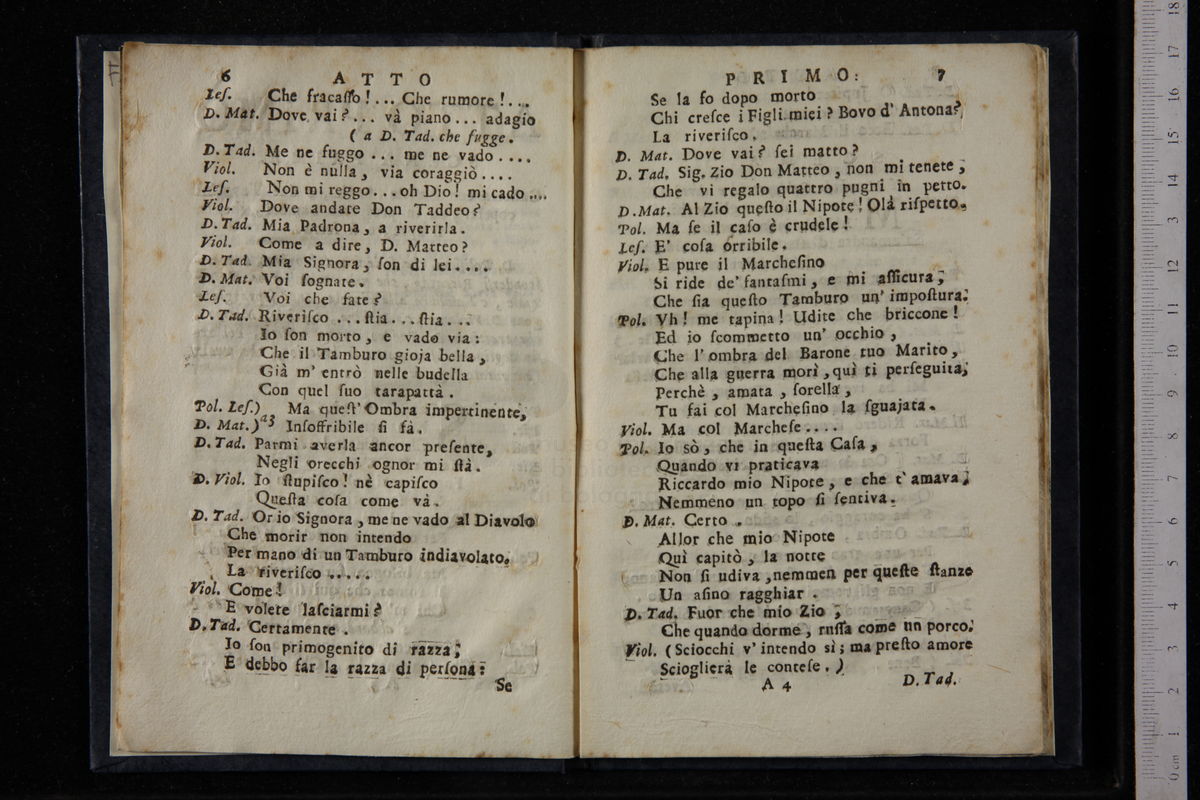 6 ATTO
Leſ. Che fracaſſo!... Che rumore!...
D. Mat. Dove vai?... và piano... adagio
( a D. Tad. che fugge.
D. Tad. Me ne fuggo ... me ne vado ....
Viol. Non è nulla, via coraggiò ....
Leſ. Non mi reggo...oh Dio! mi cado ....
Viol. Dove andate Don Taddeo?
D. Tad. Mia Padrona, a riverirla.
Viol. Come a dire, D. Matteo?
D. Tad. Mia Signora, ſon di lei....
D. Mat. Voi ſognate.
Leſ. Voi che fate?
D. Tad. Riveriſco ...ſtia...ſtia...
Io ſon morto, e vado via:
Che il Tamburo gioja bella,
Già m' entrò nelle budella
Con quel ſuo tarapattà.
Pol. Leſ.) a3 Ma queſt' Ombra impertinente,
D. Mat.) Inſoffribile ſi fà.
D. Tad. Parmi averla ancor preſente,
Negli orecchi ognor mi ſtà.
D. Viol. Io ſtupiſco! nè capiſco
Queſta coſa come và.
D. Tad. Or io Signora, me ne vado al Diavolo
Che morir non intendo
Per mano di un Tamburo indiavolato.
La riveriſco .....
Viol. Come!
E volete laſciarmi?
D. Tad. Certamente.
Io ſon primogenito di razza;
E debbo far la razza di perſona:
Se
PRIMO: 7
Se la fo dopo morto
Chi creſce i Figli miei? Bovo d' Antona?
La riveriſco.
D. Mat. Dove vai? ſei matto?
D. Tad. Sig. Zio Don Matteo, non mi tenete,
Che vi regalo quattro pugni in petto.
D. Mat. Al Zio queſto il Nipote! Olà riſpetto.
Pol. Ma ſe il caſo è crudele!
Leſ. E' coſa orribile.
Viol. E pure il Marcheſino
Si ride de' fantaſmi, e mi aſſicura,
Che ſia queſto Tamburo un' impoſtura.
Pol. Vh! me tapina! Udite che briccone!
Ed io ſcommetto un' occhio,
Che l' ombra del Barone tuo Marito,
Che alla guerra morì, quì ti perſeguita,
Perchè, amata, ſorella,
Tu fai col Marcheſino la ſguajata.
Viol. Ma col Marcheſe....
Pol. Io sò, che in queſta Caſa,
Quando vi praticava
Riccardo mio Nipote, e che t' amava,
Nemmeno un topo ſi ſentiva.
D. Mat. Certo.
Allor che mio Nipote
Quì capitò, la notte
Non ſi udiva, nemmen per queſte ſtanze
Un aſino ragghiar.
D. Tad. Fuor che mio Zio,
Che quando dorme, ruſſa come un porco.
Viol. (Sciocchi v' intendo sì; ma preſto amore
Scioglierà le conteſe.)
A 4 D. Tad.
0 cm 1 2 3 4 5 6 7 8 9 10 11 12 13 14 15 16 17 18